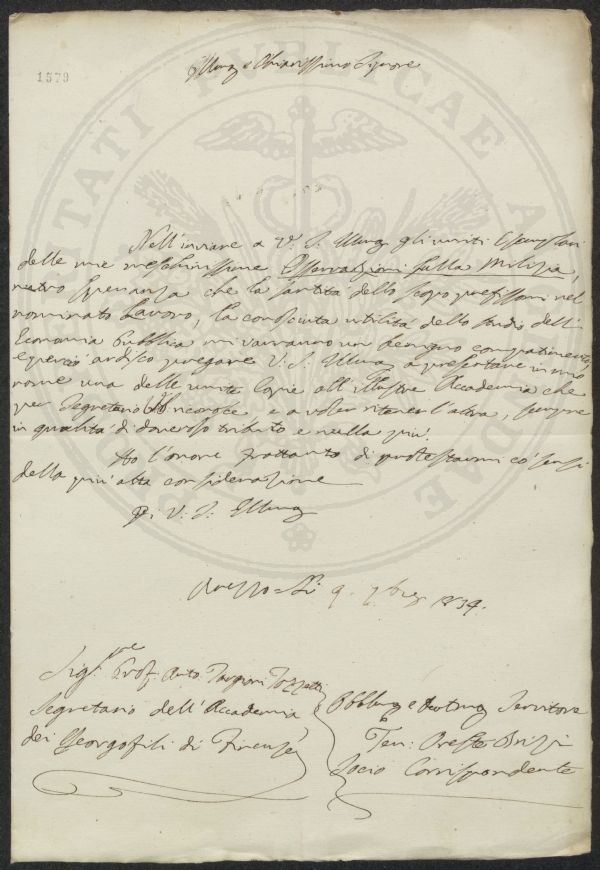 1579
Illmo e Chiarissimo Signore
PUBLICAE
Nell'inviare a V. S. Illma gli uniti Esemplari
delle mie meschinissime Osservazioni sulla Milizia,
nutro speranza che la santità dello scopo prefissomi nel
nominato Lavoro, la conosciuta utilità dello studio dell'
Economia Pubblica mi varranno un benigno compatimento,
e perciò ardisco pregare V. S. Illma a presentare in mio
nome una delle unite Copie all'illustre Accademia che
per Segretario La riconosce, e a voler ritener l'altra, sempre
in qualità di doveroso tributo e nulla più.
Ho l'onore frattanto di protestarmi co' sensi
della più alta considerazione
Di V. S. Illma
Arezzo = Li 9. 7bre 1839.
Sigr. Prof. Anto Targioni Tozzetti
Segretario dell'Accademia
dei Georgofili di Firenze
Obblmo e Devotmo Servitore
Ten: Oreste Brizi
Socio Corrispondente